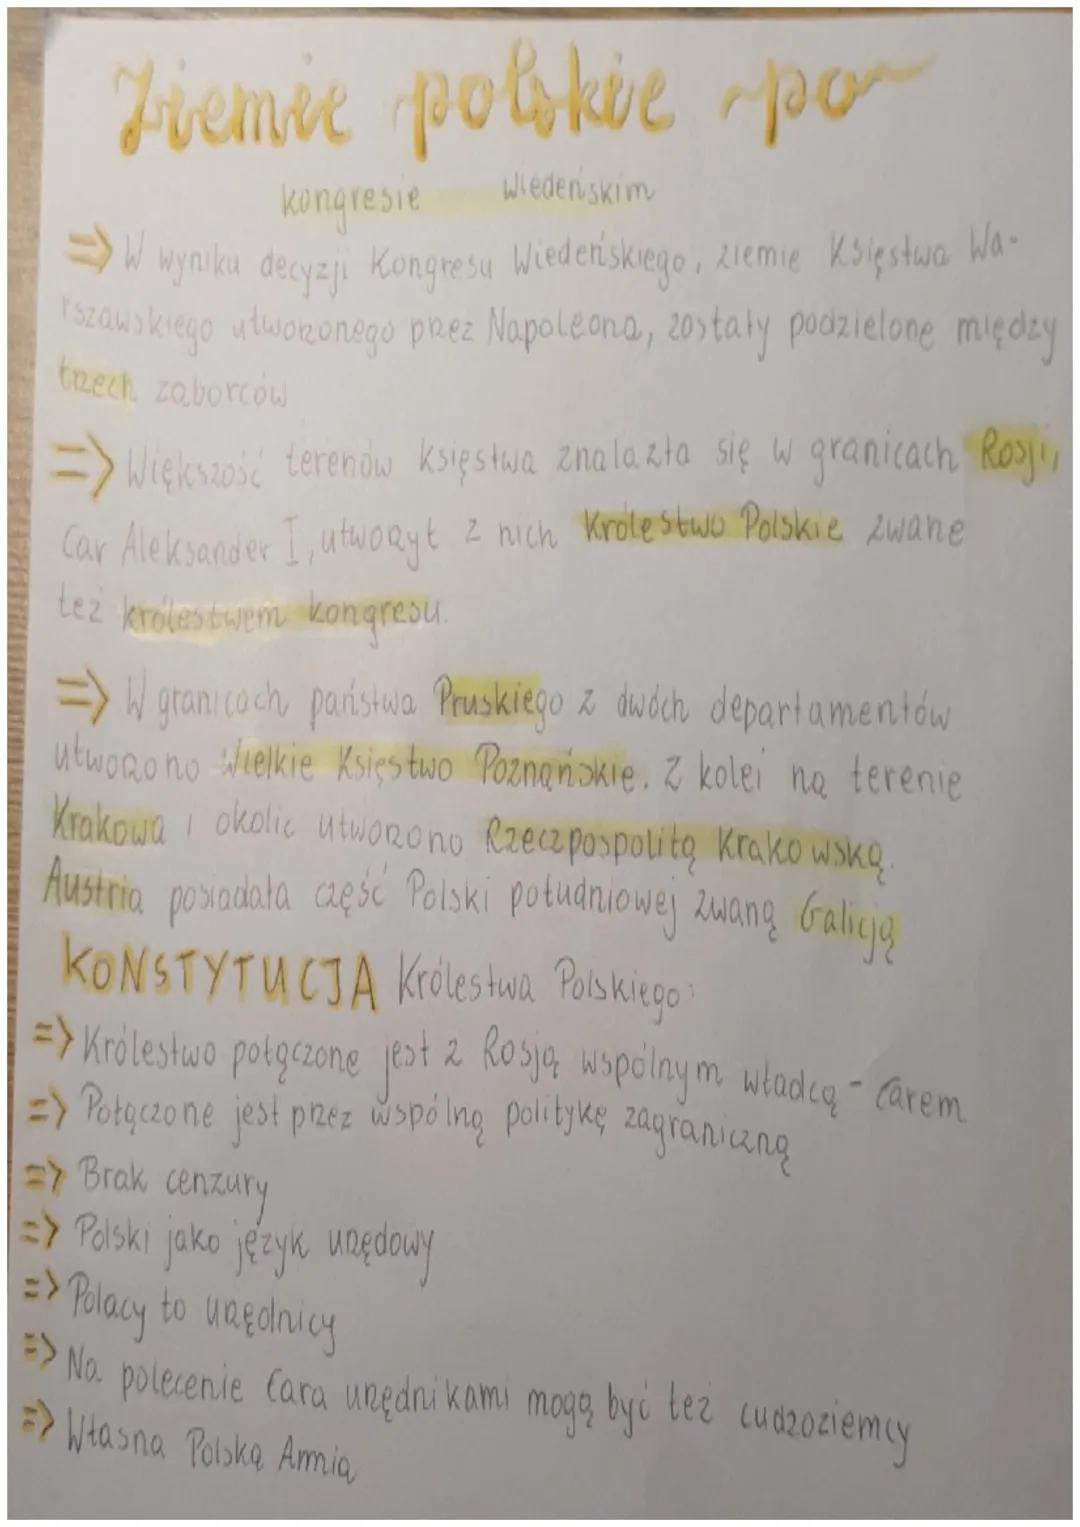 Ziemie polskie po
kongresie wiedeńskim
=> W wyniku decyzji Kongresu Wiedeńskiego, ziemie Księstwa Wa-
rszawskiego utworzonego przez Napoleona, zostały podzielone między
trzech zaborców
=> Większość terenów księstwa znalazła się w granicach Rosji,
Car Aleksander I, utworzył z nich Królestwo Polskie zwane
też królestwem kongresu.
=> W granicach państwa Pruskiego z dwóch departamentów
utworzono Wielkie Księstwo Poznańskie. Z kolei na terenie
Krakowa i okolic utworzono Rzeczpospolitą Krakowską.
Austria posiadała część Polski południowej zwaną Galicją
KONSTYTUCJA Królestwa Polskiego:
=> Królestwo połączone jest z Rosją wspólnym władcą - Carem
=> Połączone jest przez wspólną politykę zagraniczną
=> Brak cenzury
=> Polski jako język urzędowy
=> Polacy to urzędnicy
=> Na polecenie Cara urzędnikami mogą być też cudzoziemcy
=> Własna Polska Armia